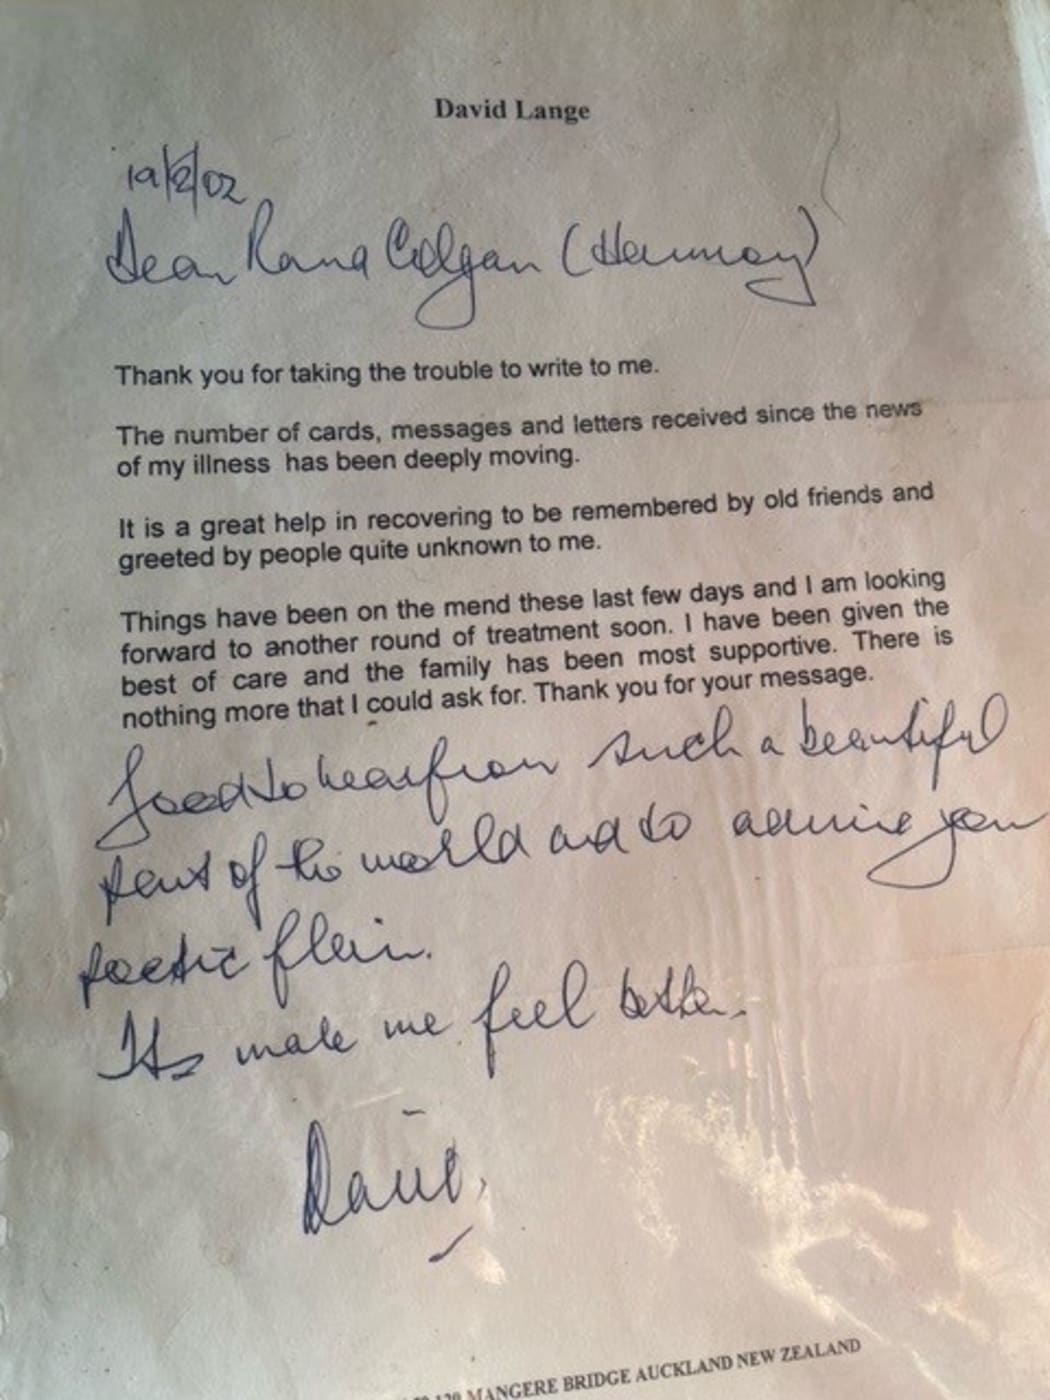 David Lange
19/2/02
Dear Rana Colgan (Hannay)
Thank you for taking the trouble to write to me.
The number of cards, messages and letters received since the news
of my illness has been deeply moving.
It is a great help in recovering to be remembered by old friends and
greeted by people quite unknown to me.
Things have been on the mend these last few days and I am looking
forward to another round of treatment soon. I have been given the
best of care and the family has been most supportive. There is
nothing more that I could ask for. Thank you for your message.
Good to hear from such a beautiful
part of the world and to admire your
poetic flair.
It's made me feel better.
David
MANGERE BRIDGE AUCKLAND NEW ZEALAND